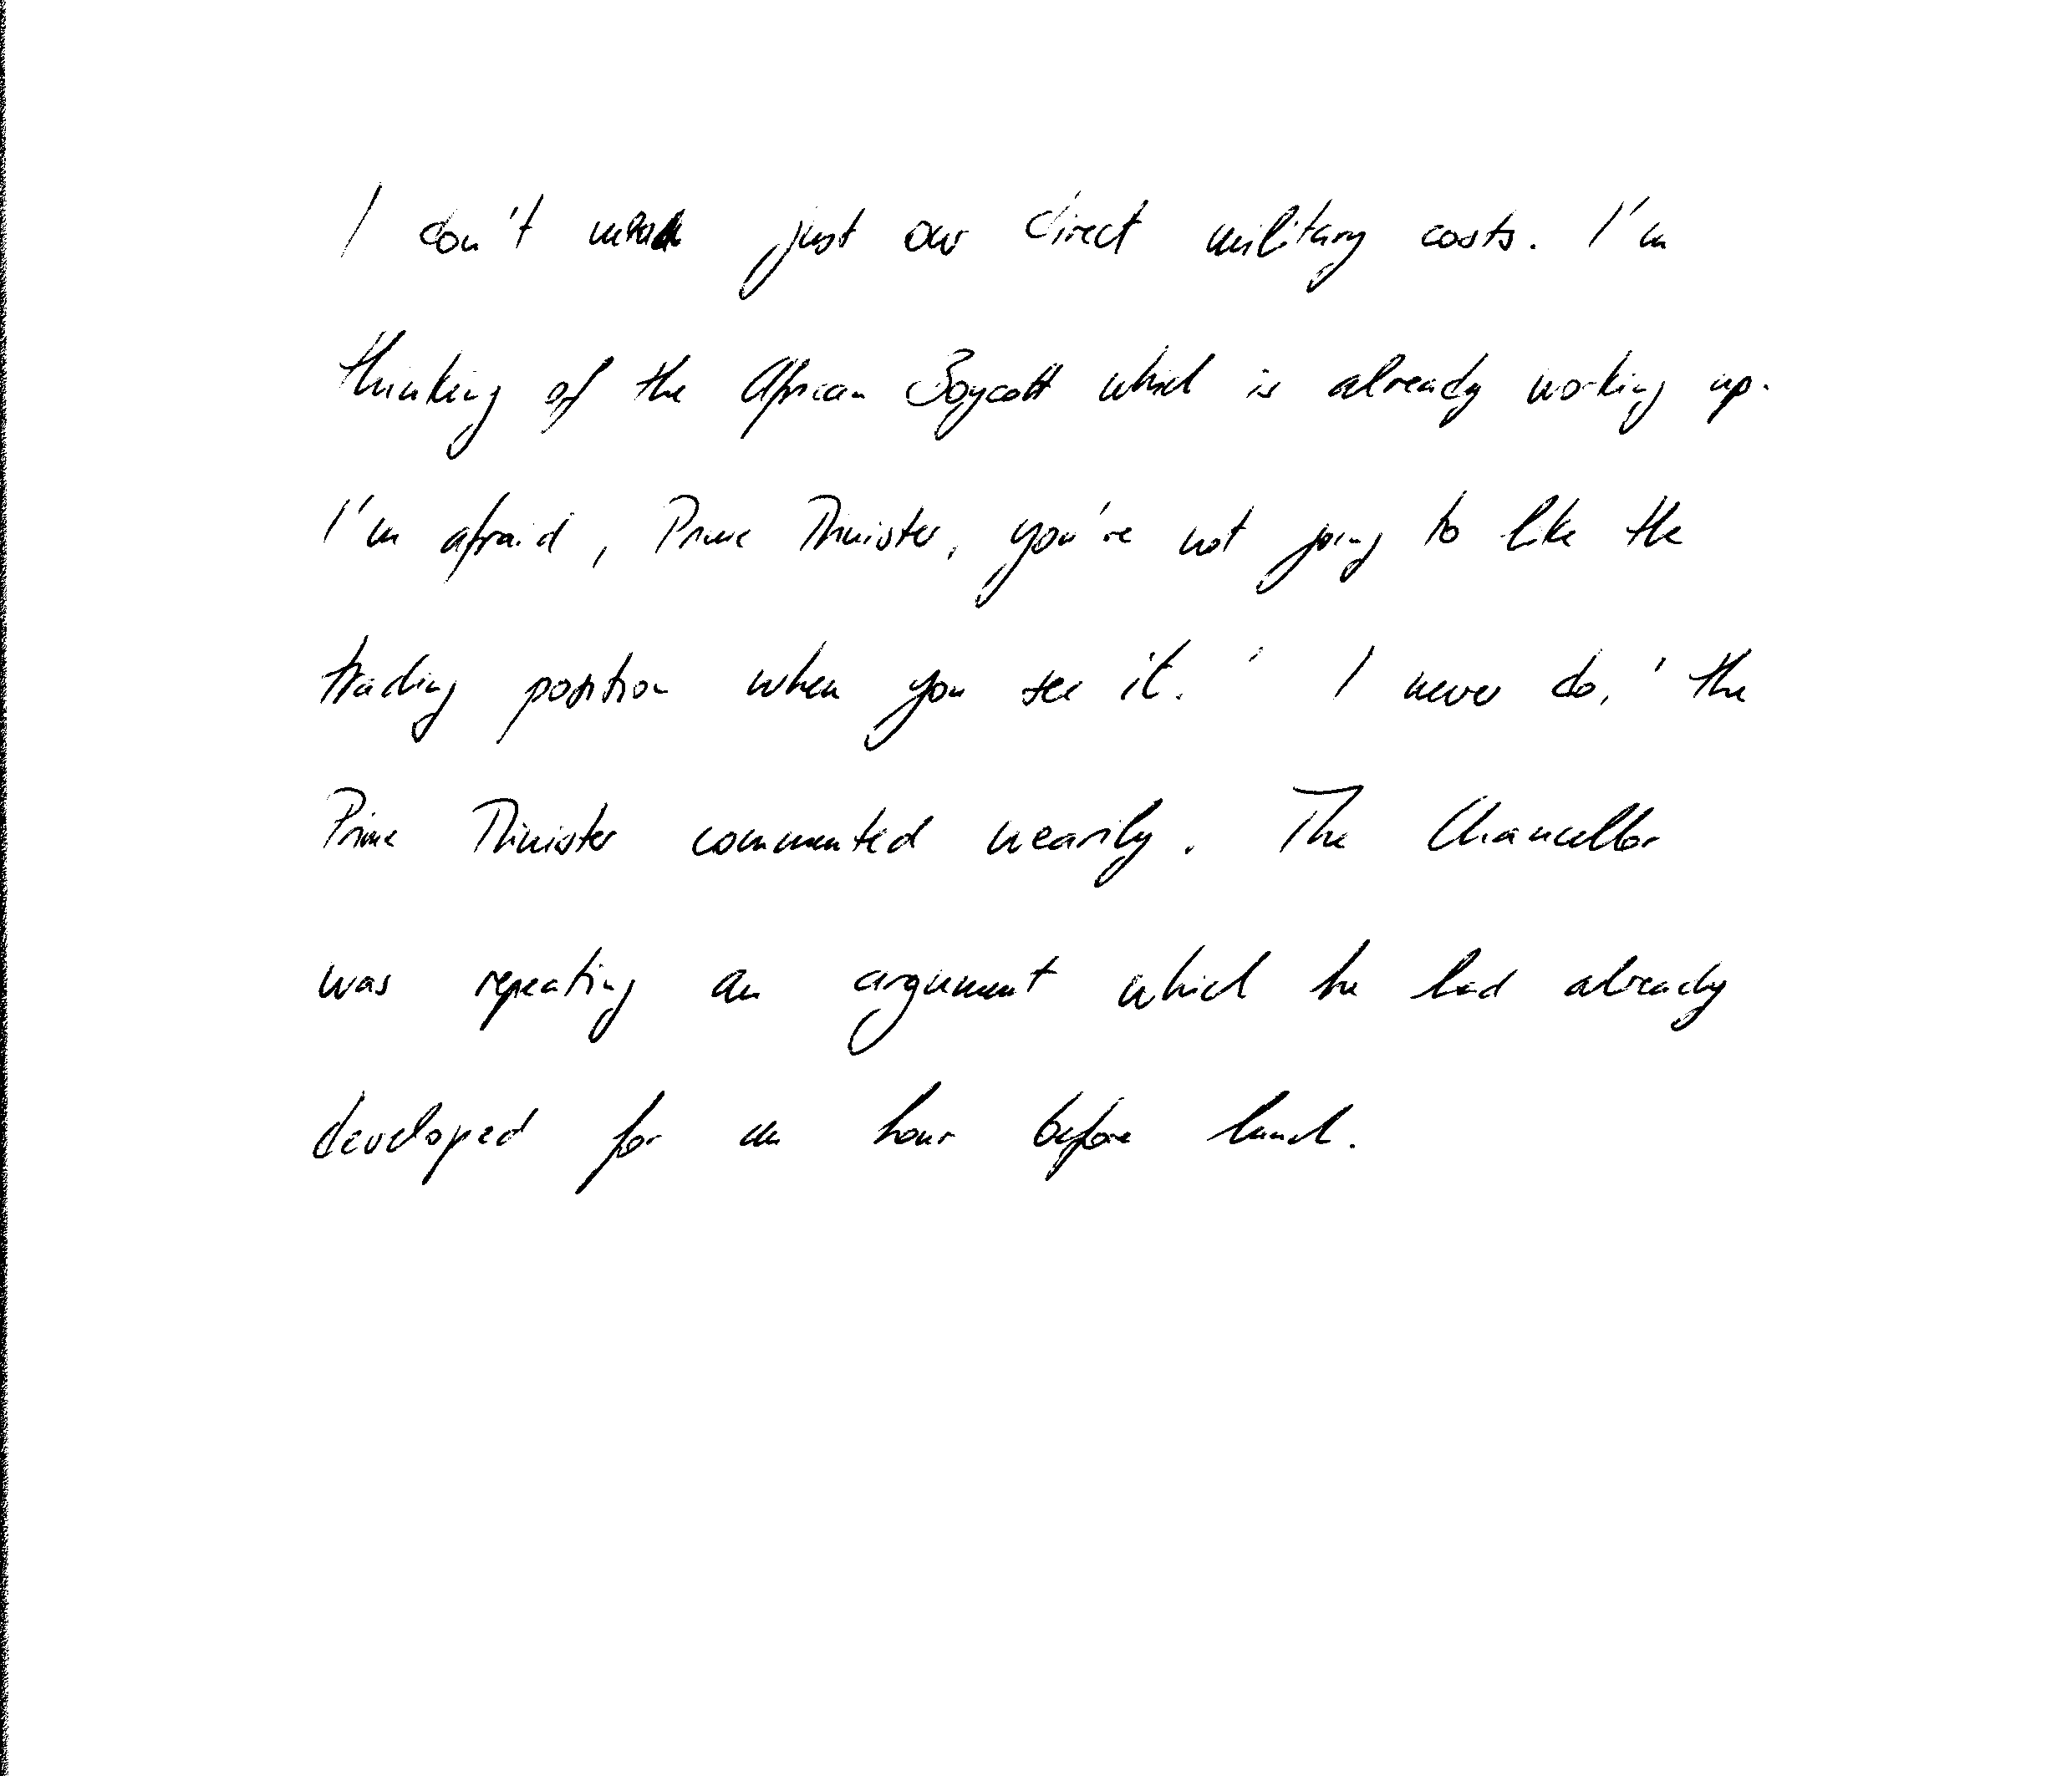 I don't mean just our direct military costs. I'm
thinking of the African Boycott which is already working up.
I'm afraid, Prime Minister, you're not going to like the
trading position when you see it.' I never do,' the
Prime Minister commented wearily. The Chancellor
was repeating an argument which he had already
developed for an hour before lunch.